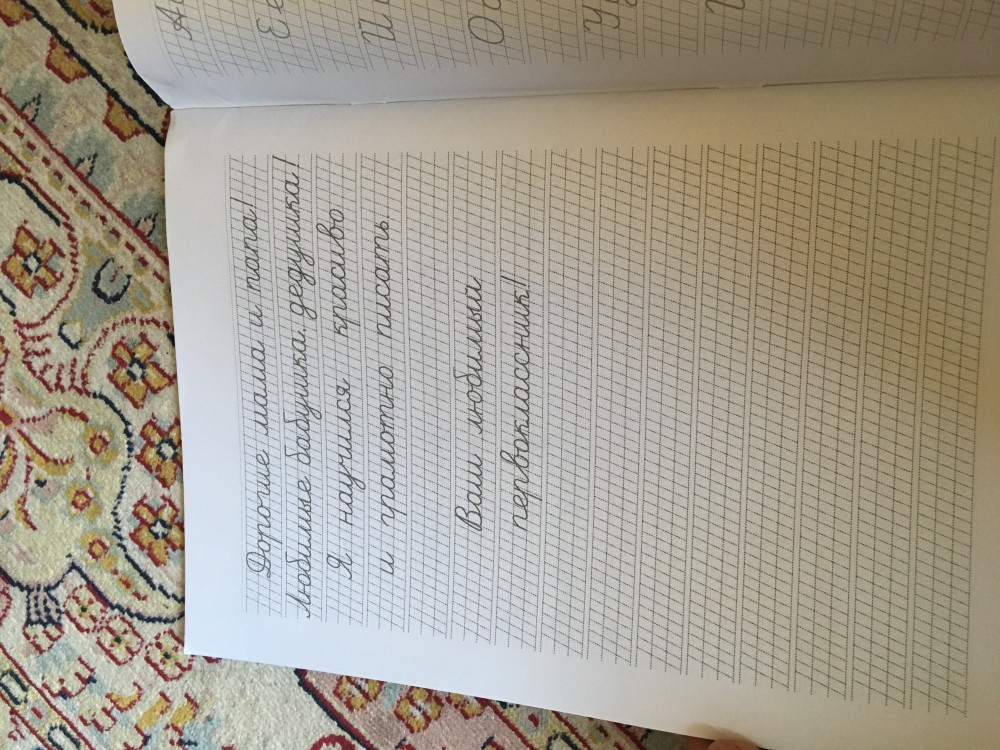 Дорогие мама и папа!
Любимые бабушка, дедушка!
Я научился красиво
и грамотно писать
Ваш любимый
первоклассник!